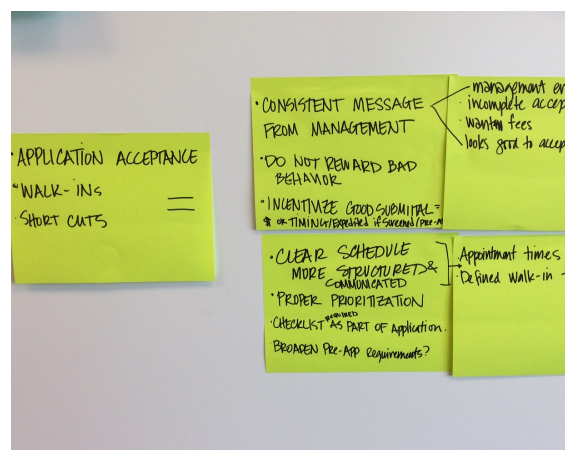 · APPLICATION ACCEPTANCE
· WALK-INS
· SHORT CUTS
=
· CONSISTENT MESSAGE
FROM MANAGEMENT
· DO NOT REWARD BAD
BEHAVIOR
· INCENTIVIZE GOOD SUBMITAL =
$ OR TIMING/Expedited if Screened/Pre-A
management
· incomplete accep
· want fees
· looks good to accep
· CLEAR SCHEDULE
MORE STRUCTURED &
COMMUNICATED
· PROPER PRIORITIZATION
· CHECKLIST REQUIRED AS PART OF Application.
BROADEN Pre-App Requirements?
· Appointment times
· Defined walk-in -